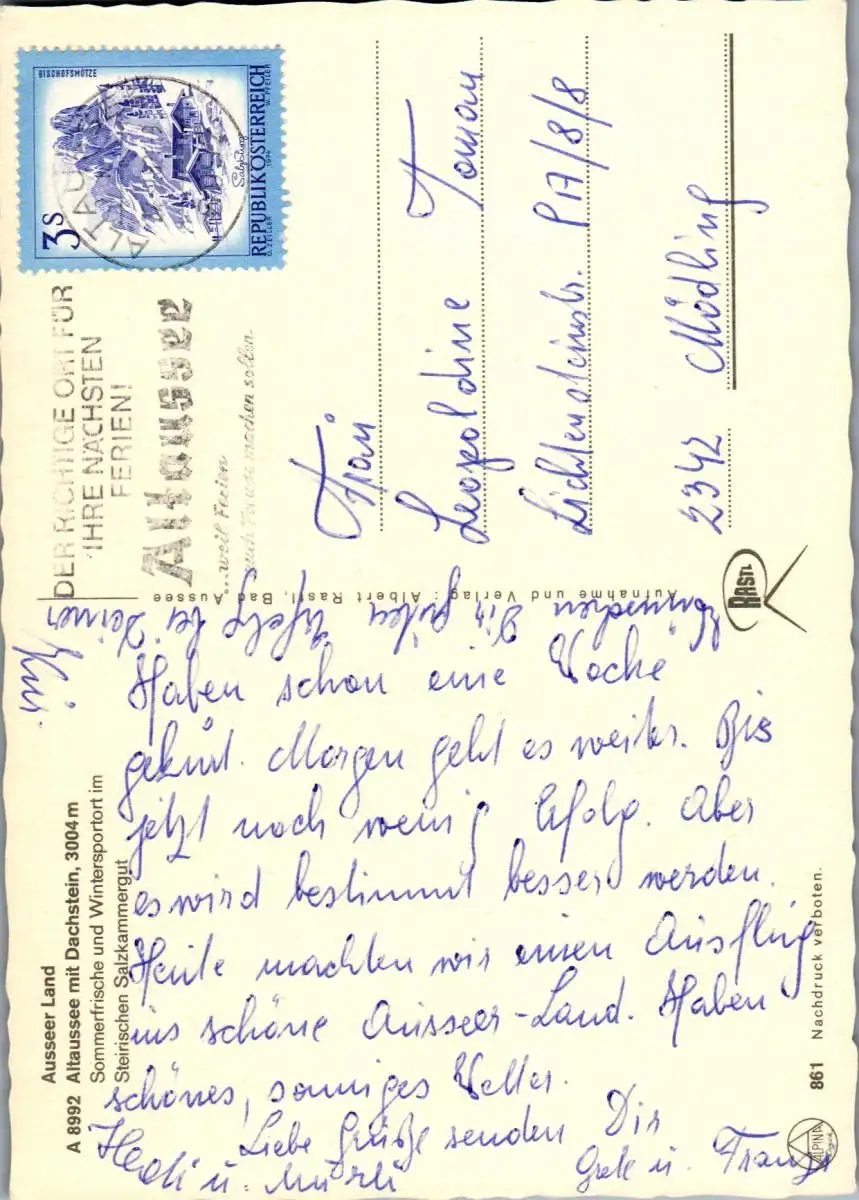 Ausseer Land
A 8992 Altaussee mit Dachstein, 3004 m
Sommerfrische und Wintersportort im
Steirischen Salzkammergut
Haben schon eine Woche
gekurt. Morgen geht es weiter. Bis
jetzt noch wenig Erfolg. Aber
es wird bestimmt besser werden.
Heute machten wir einen Ausflug
ins schöne Ausseer-Land. Haben
schönes, sonniges Wetter.
Liebe Grüße senden Dir
Hedi u.
Grete u. Franz
Wünschen Dir guten Erfolg bei Deiner
Kur
861 Nachdruck verboten.
ALPINA
Aufnahme und Verlag: Albert Rastl, Bad Aussee
RASTL
BISCHOFSMÜTZE
3 S
Salzburg
REPUBLIK ÖSTERREICH
O. ZEILLER 1974 W. PFEILER
DER RICHTIGE ORT FÜR
IHRE NÄCHSTEN
FERIEN!
Altaussee
...weil Ferien
auch Freude machen sollen
Frau
Leopoldine Toman
Lichtensteinstr. P17/8/8
2342 Mödling